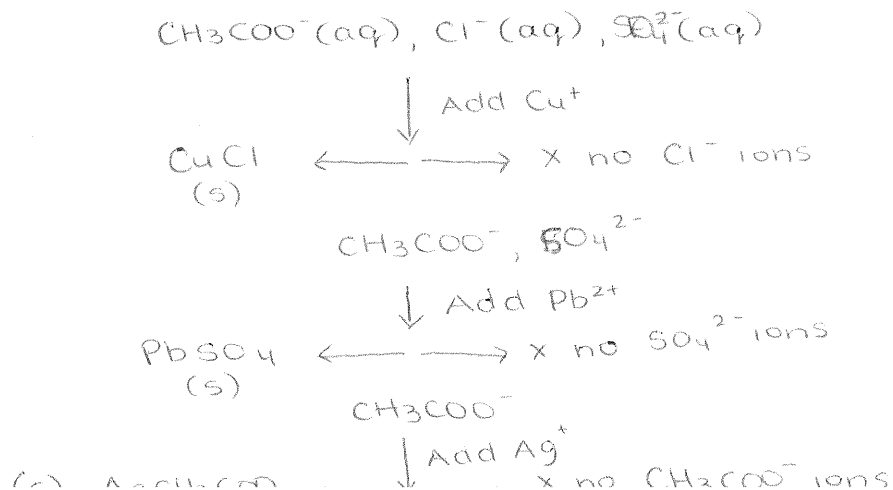 CH3COO⁻(aq), Cl⁻(aq), SO₄²⁻(aq)
Add Cu⁺
CuCl ← → x no Cl⁻ ions
(s)
CH3COO⁻, SO₄²⁻
↓ Add Pb²⁺
PbSO₄ ← → x no SO₄²⁻ ions
(s)
CH3COO⁻
Add Ag⁺
(s) AgCH3COO x no CH3COO⁻ ions